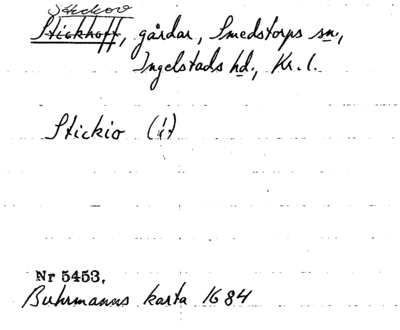 Stickov
Stickhoff, gårdar, Smedstorps sn,
Ingelstads hd., Kr. l.
Stickio (it)
Nr 5453.
Buhrmanns karta 1684